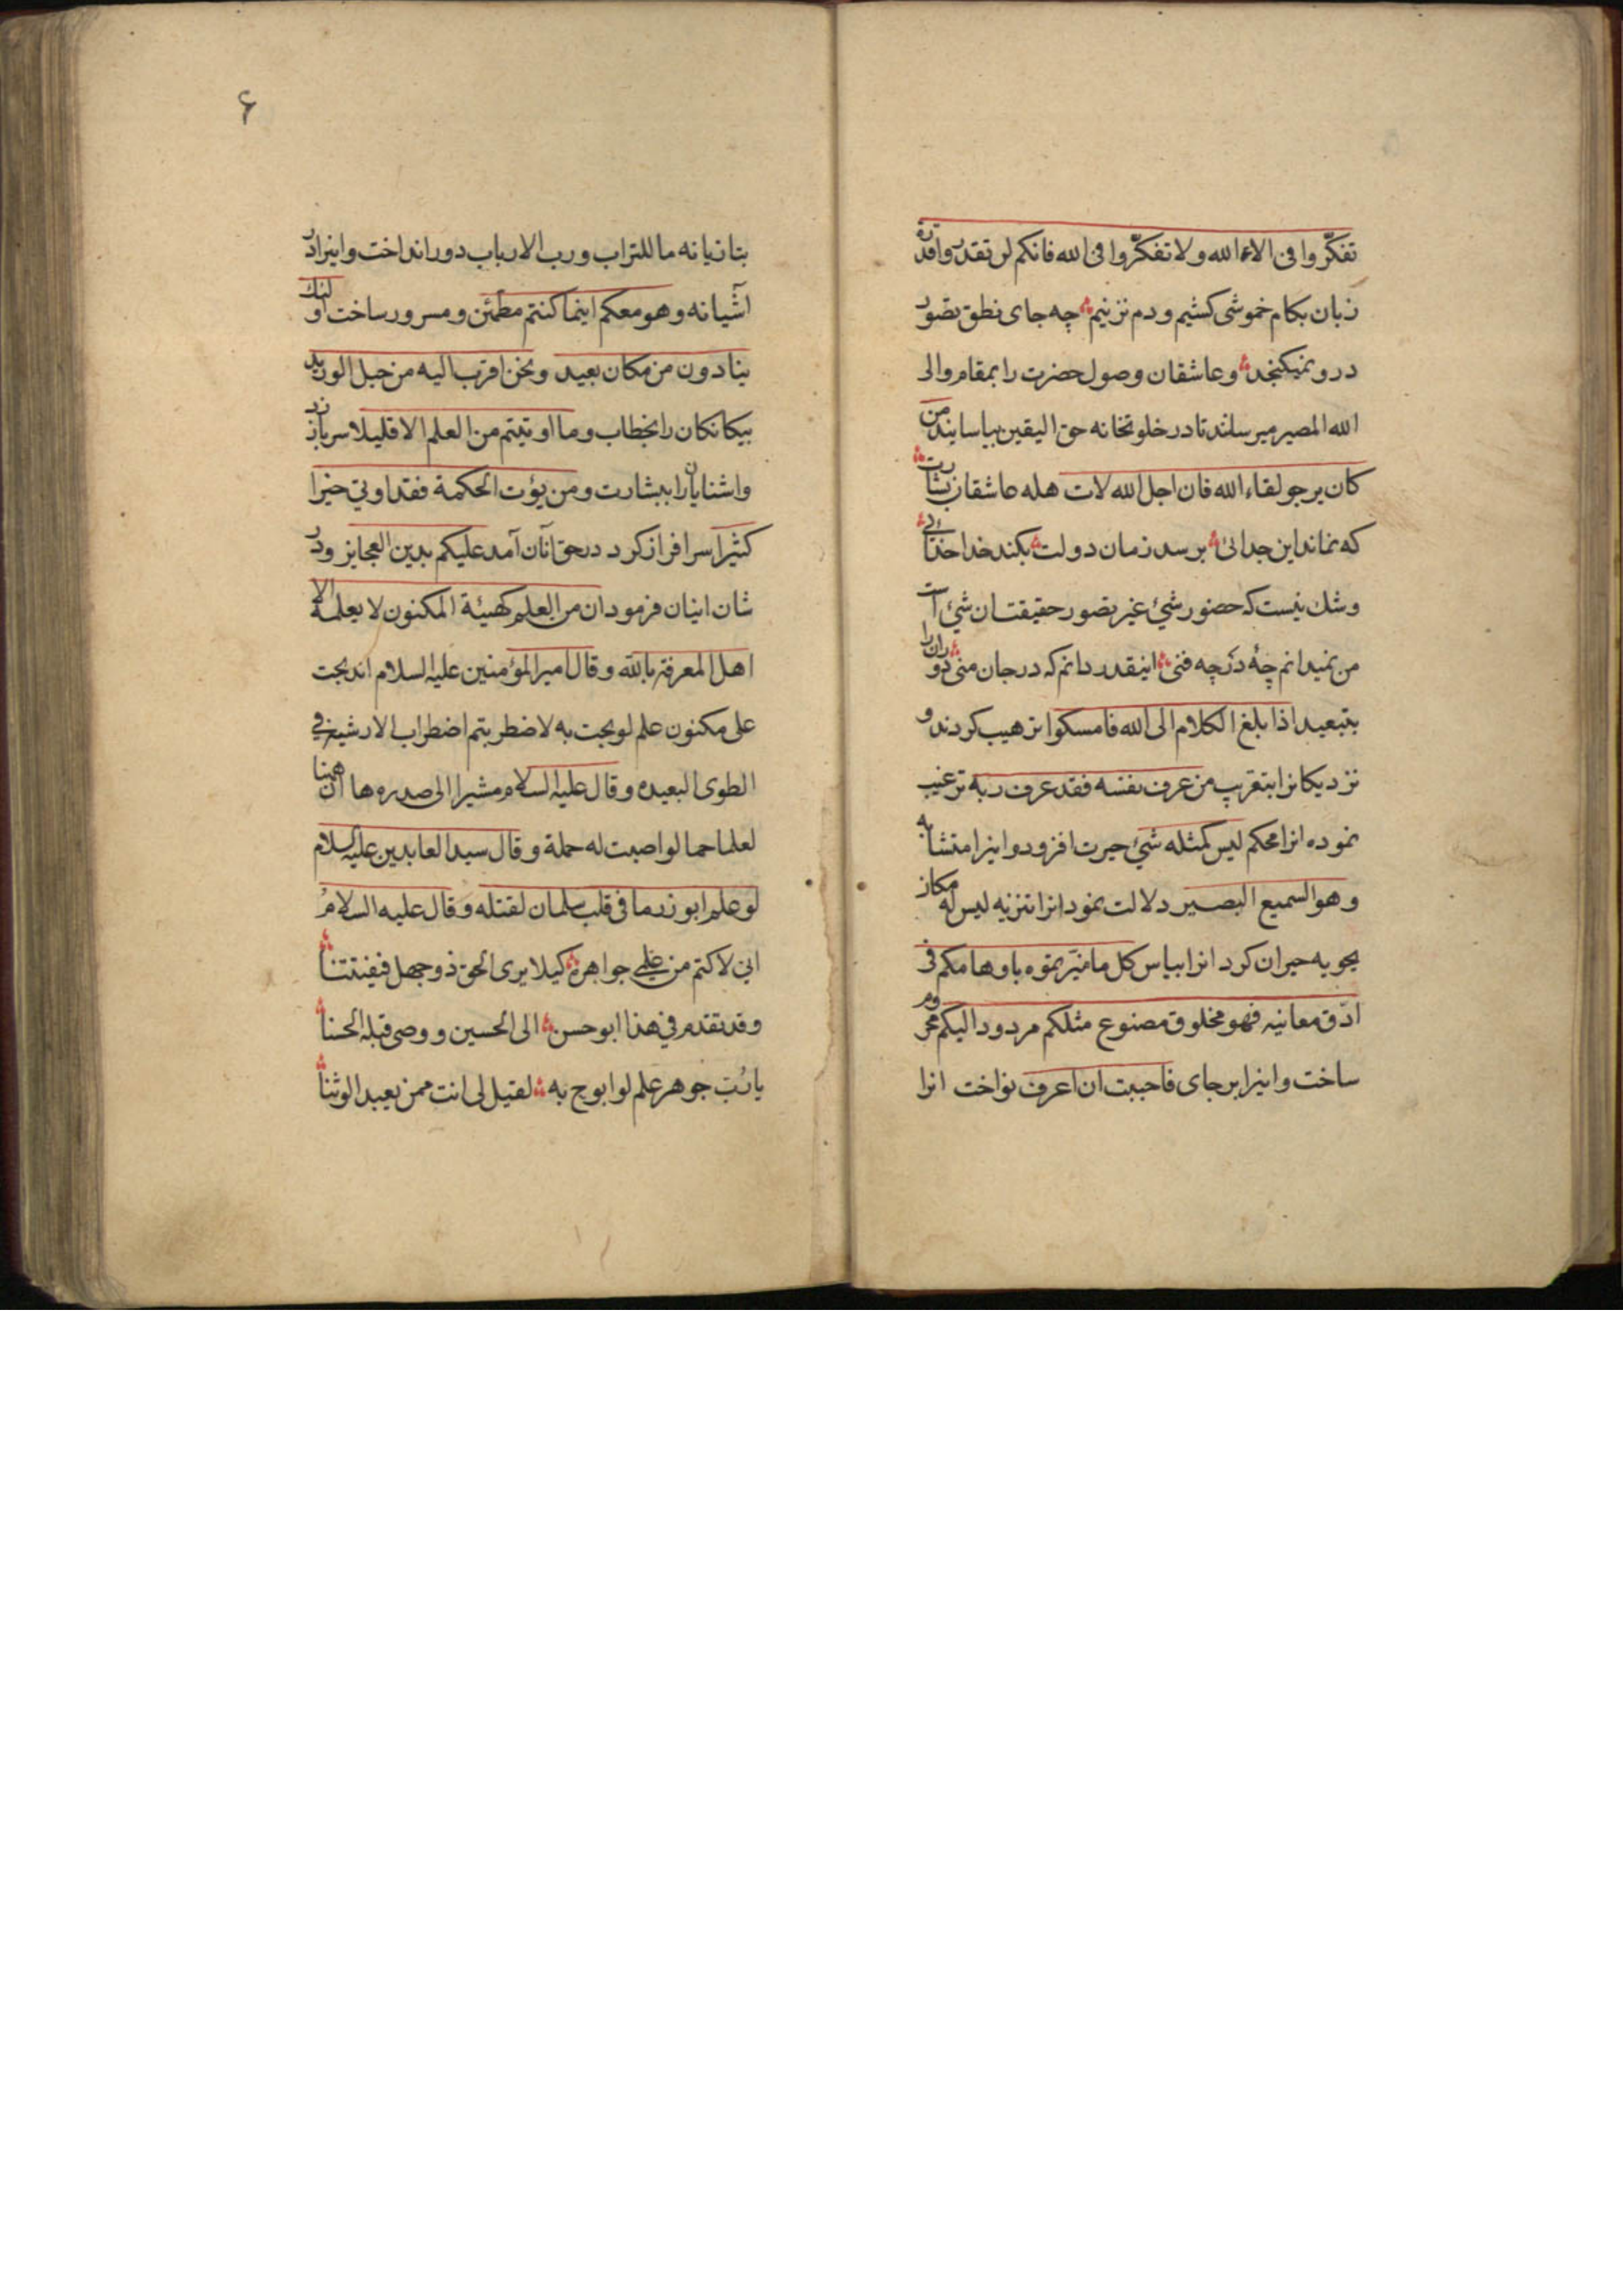 تفکّروا فی الاء الله ولا تفکّروا فی الله فانکم لن تقدروا قدره
زبان بکام خموشی کشیم و دم نزنیم ؞ چه جای نطق تصور
درو نمیکنجد ؞ و عاشقان وصول حضرت را بمقام والی
الله المصیر میرسانند تا در خلوتخانه حق الیقین بیاسایند من
کان یرجو لقاء الله فان اجل الله لات هله عاشقان بشارت ؞
که نماند این جدائی ؞ برسد زمان دولت ؞ بکند خدا خدائی ؞
و شك نیست که حضور شیٔ غیر تصور حقیقت ان شیٔ است
من نمیدانم چهٔ در چه فنی ؞ اینقدر دانم که در جان منی ؞ دوران را
بتبعید اذا بلغ الکلام الی الله فامسکوا ترهیب کردند و
نزدیکانرا بتقریب من عرف نفسه فقد عرف ربه ترغیب
نموده انرا محکم لیس کمثله شیٔ حیرت افزود و اینرا متشابه
و هو السمیع البصیر دلالت نمود انرا تنزیه لیس له مکان
یحویه حیران کرد انرا بیاس کل ما میّزتموه باوهامکم فی
ادّق معانیه فهو مخلوق مصنوع مثلکم مردود الیکم محروم
ساخت و اینرا برجای فاحببت ان اعرف نواخت انرا
۶
بتازیانه ما للتراب و رب الارباب دور انداخت و اینرا در
آشیانه و هو معکم اینما کنتم مطمئن و مسرور ساخت اولئك
ینادون من مکان بعید و نحن اقرب الیه من حبل الورید
بیکانکان را بخطاب و ما اوتیتم من العلم الا قلیلا سر باز زد
واشنایان را ببشارت و من یؤت الحکمة فقد اوتی خیرا
کثیرا سرافراز کرد در حق آنان آمد علیکم بدین العجایز و در
شان اینان فرمود ان من العلم کهیئة المکنون لا یعلمه الا
اهل المعرفة بالله و قال امیر المؤمنین علیه السلام اندبجت
علی مکنون علم لو بحت به لاضطربتم اضطراب الارشیة فی
الطوی البعیده و قال علیه السلام مشیرا الی صدره ها ان ههنا
لعلما جما لو اصبت له حملة و قال سید العابدین علیه السلام
لو علم ابوذر ما فی قلب سلمان لقتله و قال علیه السلام
انی لاکتم من علمی جواهره ؞ کیلا یری الحق ذو جهل فیفتتنا ؞
و قد تقدم فی هذا ابو حسن ؞ الی الحسین و وصی قبله الحسنا ؞
یا رُبّ جوهر علم لو ابوح به ؞ لقیل لی انت ممن یعبد الوثنا ؞